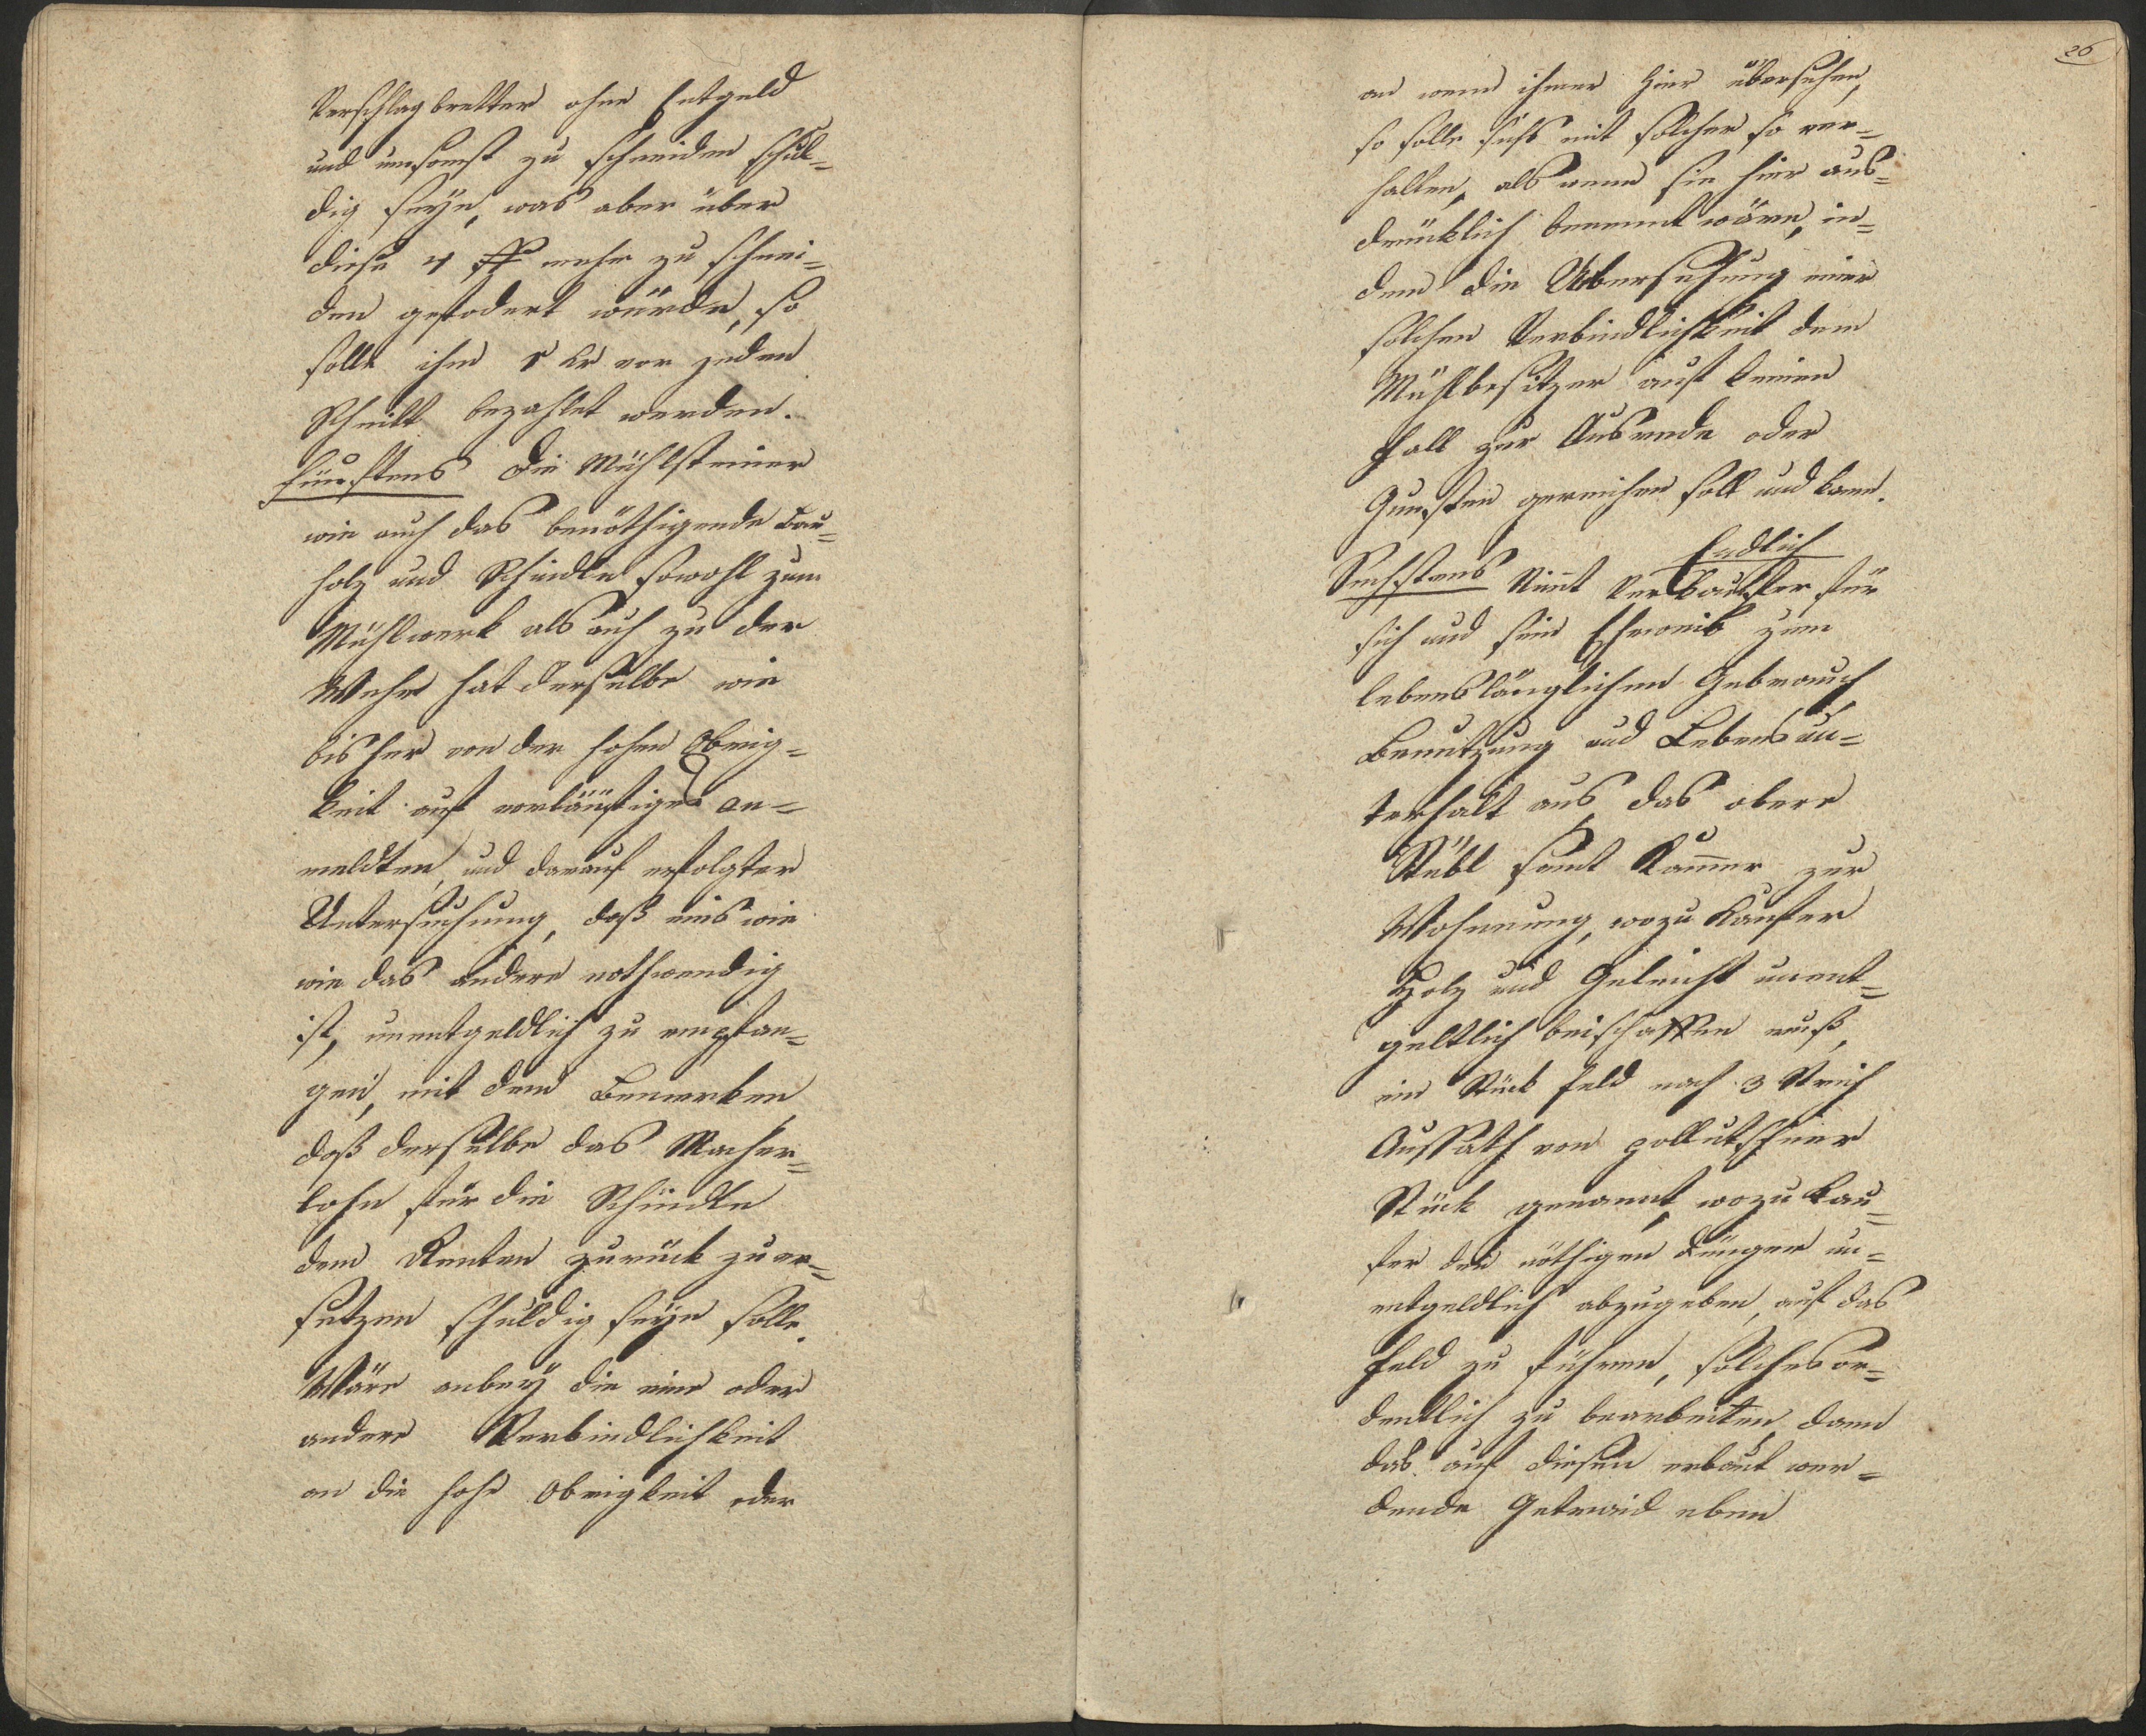 Verschlagbretter ohne Entgeld
und umsonst zu schneiden schul=
dig seÿe, was aber über
diese 4 ß mehr zu schnei=
den gefodert würde, so
solle ihm 1 Kr vor jeden
Schnitt bezahlet werden.
Fünftens Die Mühlsteiner
wie auch das benöthigende Bau=
holz und Schindln sowohl zum
Mühlwerk als auch zu der
Wehr hat derselbe wie
bisher von der hohen Obrig=
keit auf vorläufiges an=
meldten, und darauf erfolgter
Untersuchung, daß eins wie
wie das andere nothwendig
ist, unentgeldlich zu empfan=
gen, mit dem Bemerken,
daß derselbe das Macher=
lohn für die Schindln
dem Renten zurück zu er=
setzen schuldig seÿn solle.
Wäre anbeÿ die eine oder
andere Verbindlichkeit
an die hohe Obrigkeit oder
26
an wem ihmer hier übersehen,
so solle sichs mit solcher so ver=
halten, als wenn sie hier aus=
drücklich benennt wäre, in=
dem die Übersehung einer
solchen Verbindlichkeit dem
Mühlbesitzer auf keinen
Fall zur Ausrede oder
Gunsten gereichen soll und kann.
Endlich
Sechstens Nimt Verkaufer für
sich und sein Eheweib zum
lebenslänglichen Gebrauch
Benutzung und Lebensun=
terhalt aus, das obere
Stübl samt Kammer zur
Wohnung, wozu Kaufer
Holz und Geleicht unent=
geltlich beischaffen muß,
ein Stück Feld nach 3 Strich
Aussath von pollutschner
Stück genannt, wozu Kau=
fer den nöthigen Dünger un=
entgeldlich abzugeben, auf das
Feld zu führen, solches or=
dentlich zu bearbeiten, dann
das auf diesen erbaut wer=
dende Getraid eben